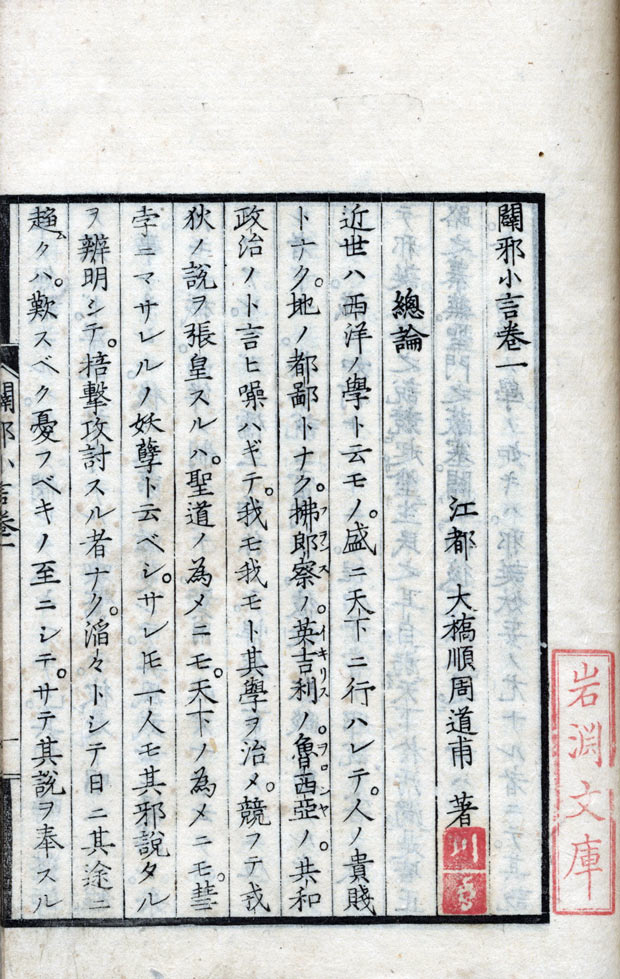 闢邪小言卷一
江都 大橋順周道甫 著
總論
近世ハ西洋ノ學ト云モノ。盛ニ天下ニ行ハレテ。人ノ貴賤
トナク。地ノ都鄙トナク。拂郎察ノ。英吉利ノ。魯西亞ノ。共和
政治ノト言ヒ噪ハギテ。我モ我モト其學ヲ治メ。競フテ戎
狄ノ說ヲ張皇スルハ。聖道ノ為メニモ。天下ノ為メニモ。彗
孛ニマサレルノ妖孽ト云ベシ。サレ𪜈一人モ其邪說タル
ヲ辨明シテ。掊擊攻討スル者ナク。滔々トシテ日ニ其途ニ
趨クハ。歎スベク憂フベキノ至ニシテ。サテ其說ヲ奉スル
闢邪小言卷一
一
岩淵文庫